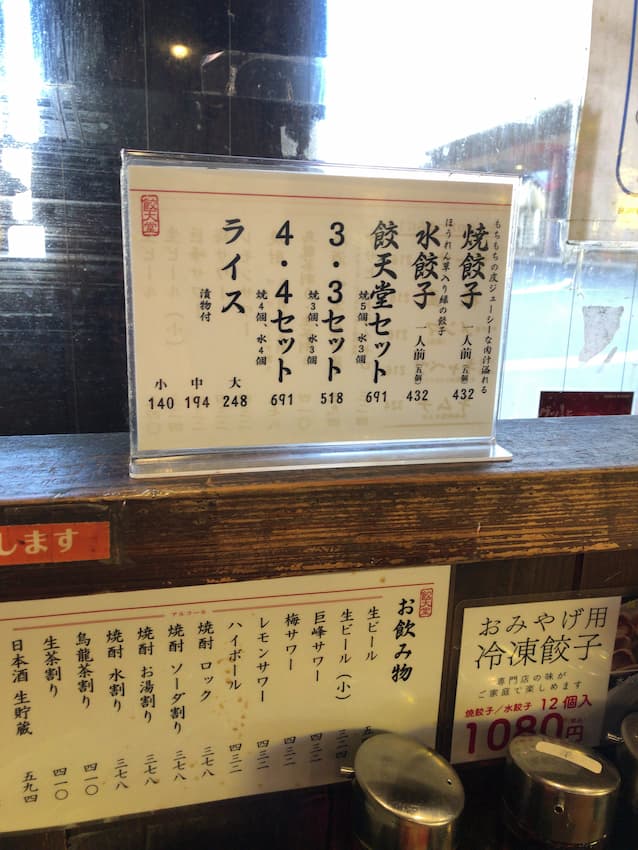 餃天堂
もちもちの皮ジューシーな肉汁溢れる
焼餃子 一人前(五個) 432
ほうれん草入り緑の餃子
水餃子 一人前(五個) 432
餃天堂セット 焼5個、水3個 691
3・3セット 焼3個、水3個 518
4・4セット 焼4個、水4個 691
ライス 漬物付
大 248
中 194
小 140
します
餃天堂
お飲み物
アルコール
生ビール
生ビール(小) 三二四
巨峰サワー 四三二
梅サワー 四三二
レモンサワー 四三二
ハイボール 四三二
焼酎 ロック 三七八
焼酎 ソーダ割り 三七八
焼酎 お湯割り 三七八
焼酎 水割り 三七八
烏龍茶割り 四一〇
生茶割り 四一〇
日本酒 生貯蔵 五九四
おみやげ用
冷凍餃子
専門店の味が
ご家庭で楽しめます
焼餃子/水餃子 12個入
1080円